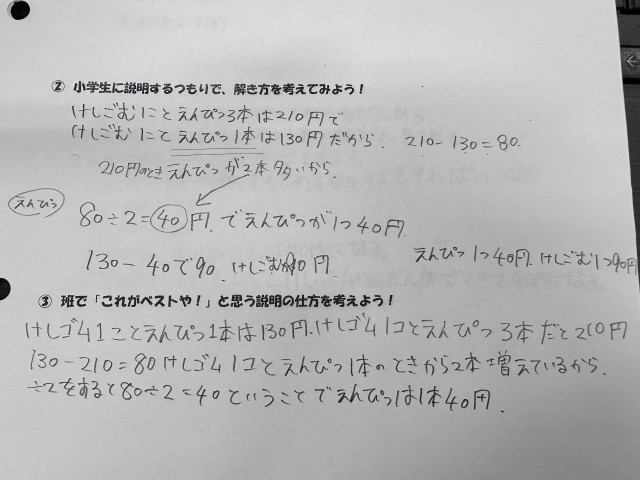 ② 小学生に説明するつもりで、解き方を考えてみよう！
けしごむ1ことえんぴつ3本は210円で
けしごむ1ことえんぴつ1本は130円だから． 210-130=80.
210円のときえんぴつが2本多いから．
えんぴつ
80÷2=40円．でえんぴつが1つ40円．
130-40で90．けしごむが90円． えんぴつ1つ40円．けしごむ1つ90円
③ 班で「これがベストや！」と思う説明の仕方を考えよう！
けしゴム1ことえんぴつ1本は130円．けしゴム1コとえんぴつ3本だと210円
130-210=80けしゴム1コとえんぴつ1本のときから2本増えているから．
÷2をすると80÷2=40ということでえんぴつは1本40円．